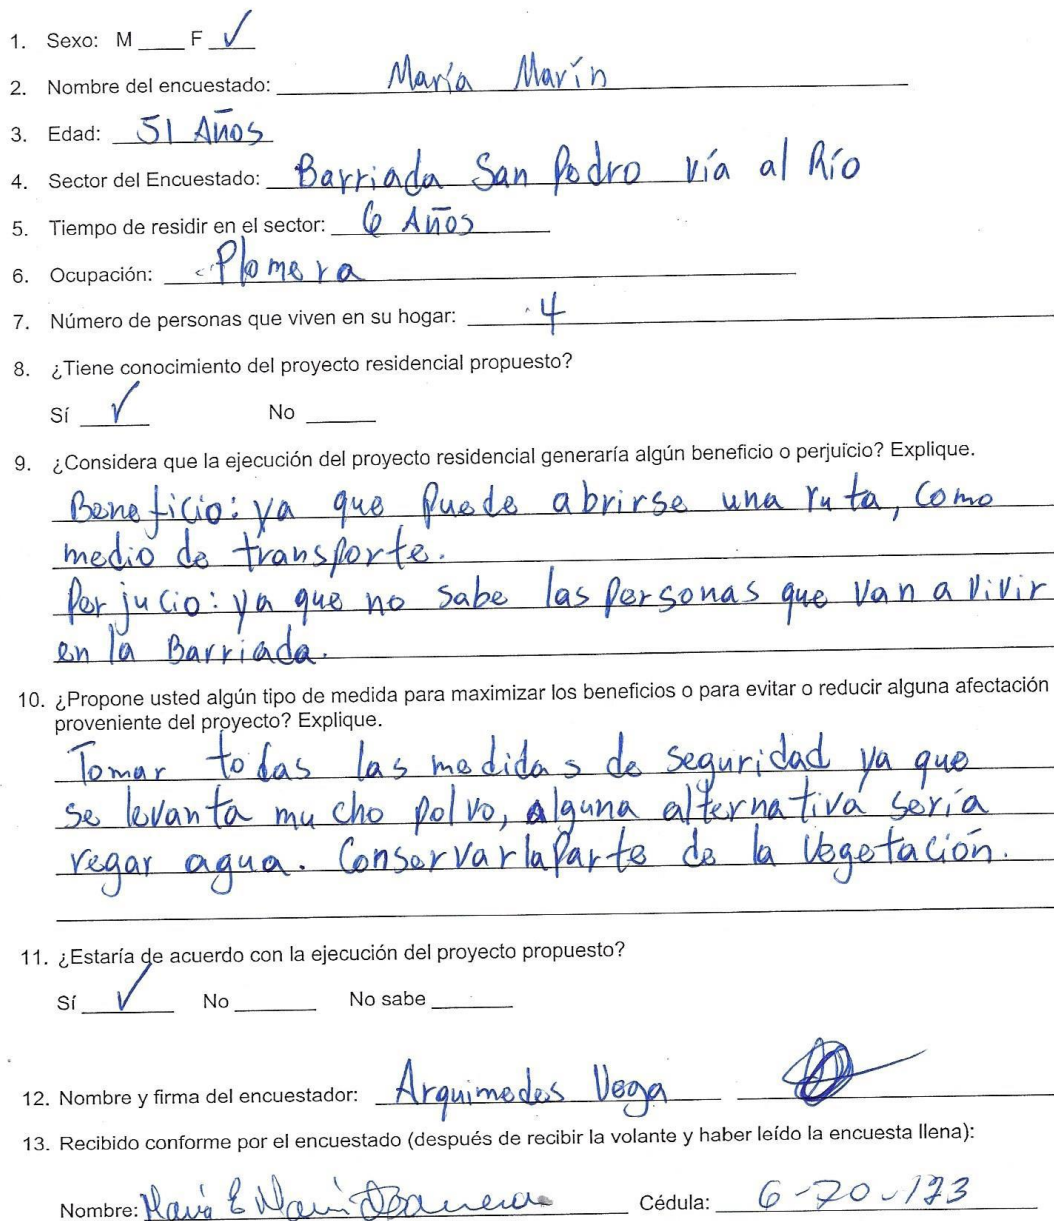 1. Sexo: M ____ F ✓
2. Nombre del encuestado: María Marín
3. Edad: 51 Años
4. Sector del Encuestado: Barriada San Pedro vía al Río
5. Tiempo de residir en el sector: 6 Años
6. Ocupación: Plomera
7. Número de personas que viven en su hogar: 4
8. ¿Tiene conocimiento del proyecto residencial propuesto?
Sí ✓ No ____
9. ¿Considera que la ejecución del proyecto residencial generaría algún beneficio o perjuicio? Explique.
Beneficio: ya que Puede abrirse una ruta, como
medio de transporte.
Perjucio: ya que no sabe las Personas que van a vivir
en la Barriada.
10. ¿Propone usted algún tipo de medida para maximizar los beneficios o para evitar o reducir alguna afectación
proveniente del proyecto? Explique.
Tomar todas las medidas de seguridad ya que
se levanta mucho polvo, alguna alternativa sería
regar agua. Conservar la Parte de la Vegetación.
11. ¿Estaría de acuerdo con la ejecución del proyecto propuesto?
Sí ✓ No ____ No sabe ____
12. Nombre y firma del encuestador: Arquimedes Vega
13. Recibido conforme por el encuestado (después de recibir la volante y haber leído la encuesta llena):
Nombre: María E Marín Cédula: